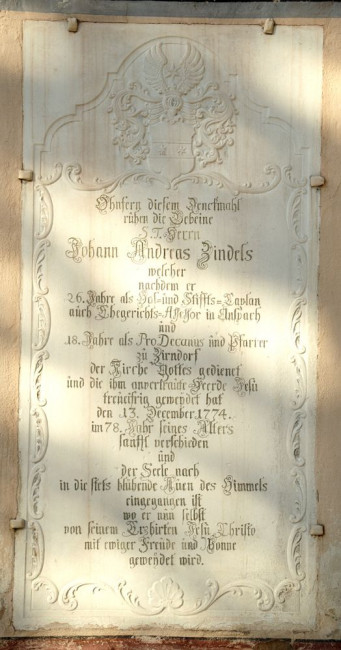 Ohnfern diesem Denckmahl
ruhen die Gebeine
S.T. Herrn
Johann Andreas Zindels
welcher
nachdem er
26. Jahre als Hof- und Stiffts-Caplan
auch Ehegerichts-Assessor in Anspach
und
18. Jahre als ProDecanus und Pfarrer
zu Zirndorf
der Kirche Gottes gedienet
und die ihm anvertraute Heerde Jesu
treueifrig geweydet hat
den 13. December 1774.
im 78. Jahr seines Alters
sanfft verschieden
und
der Seele nach
in die stets blühende Auen des Himmels
eingegangen ist
wo er nun selbst
von seinem Ertzhirten Jesu Christo
mit ewiger Freude und Wonne
geweydet wird.